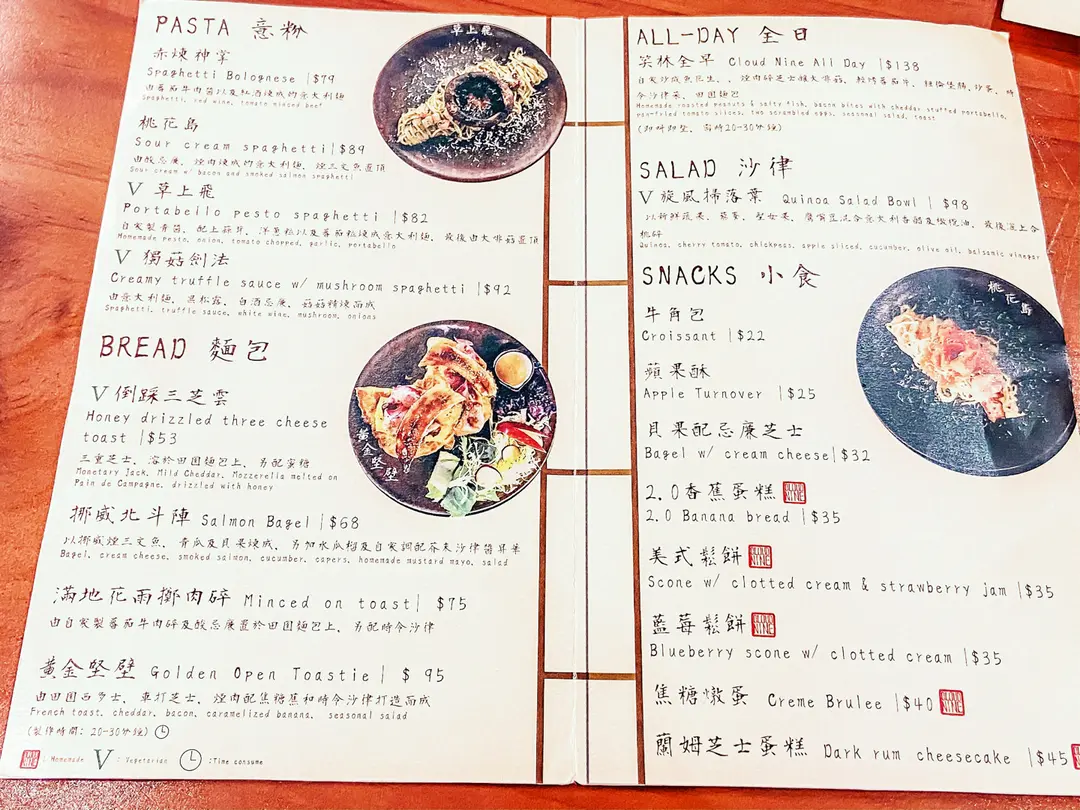 PASTA 意粉
赤煉神掌
Spaghetti Bolognese |$79
由番茄牛肉醬以及紅酒煉成的意大利麵
Spaghetti, red wine, tomato minced beef
桃花島
Sour cream spaghetti|$89
由酸忌廉、煙肉煉成的意大利麵、煙三文魚置頂
Sour cream w/ bacon and smoked salmon spaghetti
V 草上飛
Portabello pesto spaghetti |$82
自家製青醬、配上蒜茸、洋蔥粒以及番茄粒煉成意大利麵、最後由大啡菇置頂
Homemade pesto, onion, tomato chopped, garlic, portabello
V 獨菇劍法
Creamy truffle sauce w/ mushroom spaghetti |$92
由意大利麵、黑松露、白酒忌廉、菇菇精煉而成
Spaghetti, truffle sauce, white wine, mushroom, onions
草上飛
BREAD 麵包
V 倒踩三芝雲
Honey drizzled three cheese
toast |$53
三重芝士、溶於田園麵包上、另配蜜糖
Monetary Jack, Mild Cheddar, Mozzerella melted on
Pain de Campagne, drizzled with honey
挪威北斗陣 Salmon Bagel |$68
以挪威煙三文魚、青瓜及貝果煉成、另加水瓜榴及自家調配芥末沙律醬昇華
Bagel, cream cheese, smoked salmon, cucumber, capers, homemade mustard mayo, salad
滿地花雨擲肉碎 Minced on toast| $75
由自家製番茄牛肉碎及酸忌廉置於田園麵包上、另配時令沙律
黃金堅壁 Golden Open Toastie| $ 95
由田園西多士、車打芝士、煙肉配焦糖蕉和時令沙律打造而成
French toast, cheddar, bacon, caramelized banana, seasonal salad
(製作時間: 20-30分鐘)
黃金堅壁
: Homemade V : Vegetarian :Time consume
ALL-DAY 全日
笑林全早 Cloud Nine All Day |$138
Homemade roasted peanuts & salty fish, bacon bites with cheddar stuffed portabello,
pan-fried tomato slices, two scrambled eggs, seasonal salad, toast
(即叫即整, 需時20-30分鐘)
SALAD 沙律
V 旋風掃落葉 Quinoa Salad Bowl | $98
以新鮮蔬果、藜麥、聖女果、鷹嘴豆混合意大利香醋及橄欖油、最後灑上合
桃碎
Quinoa, cherry tomato, chickpeas, apple sliced, cucumber, olive oil, balsamic vinegar
SNACKS 小食
牛角包
Croissant |$22
蘋果酥
Apple Turnover |$25
貝果配忌廉芝士
Bagel w/ cream cheese|$32
2.0香蕉蛋糕
2.0 Banana bread |$35
美式鬆餅
Scone w/ clotted cream & strawberry jam |$35
藍莓鬆餅
Blueberry scone w/ clotted cream |$35
焦糖燉蛋 Creme Brulee |$40
蘭姆芝士蛋糕 Dark rum cheesecake |$45
桃花島